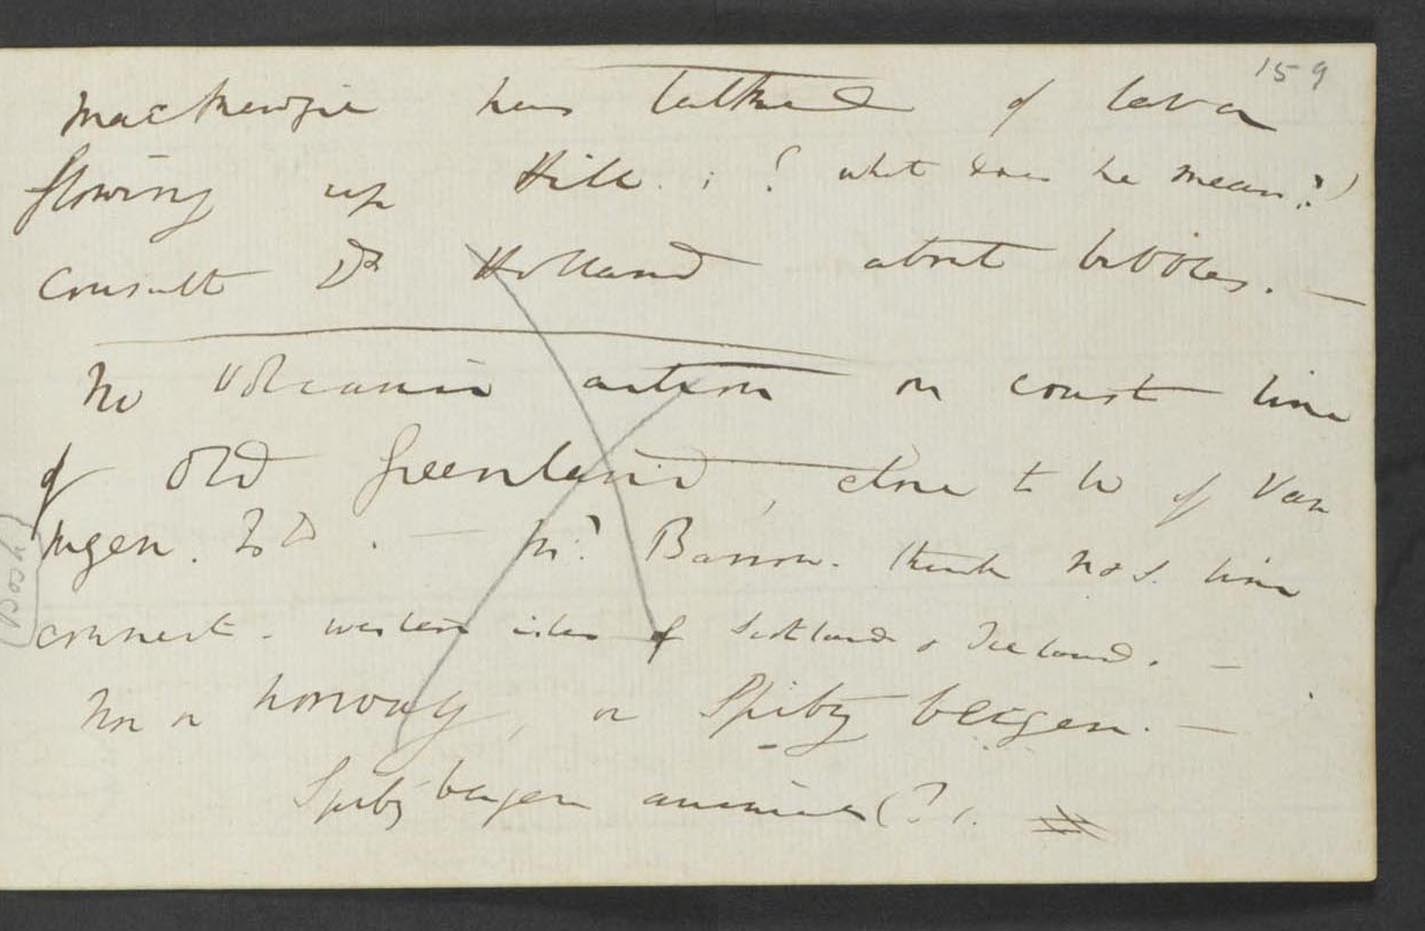 159
Mackenzie has talked of lava
flowing up Hill. ; (? what does he mean??)
Consult Dr Holland about bubbles. —
No Volcanic action on coast line
of Old Greenland, close to W of Van
Mayen. Isd. — Mr? Barrow. think N & S. line
connect. western isles of Scotland & Iceland. —
Bosh
Nor on Norway, or Spitzbergen. —
Spitzbergen animals (?).